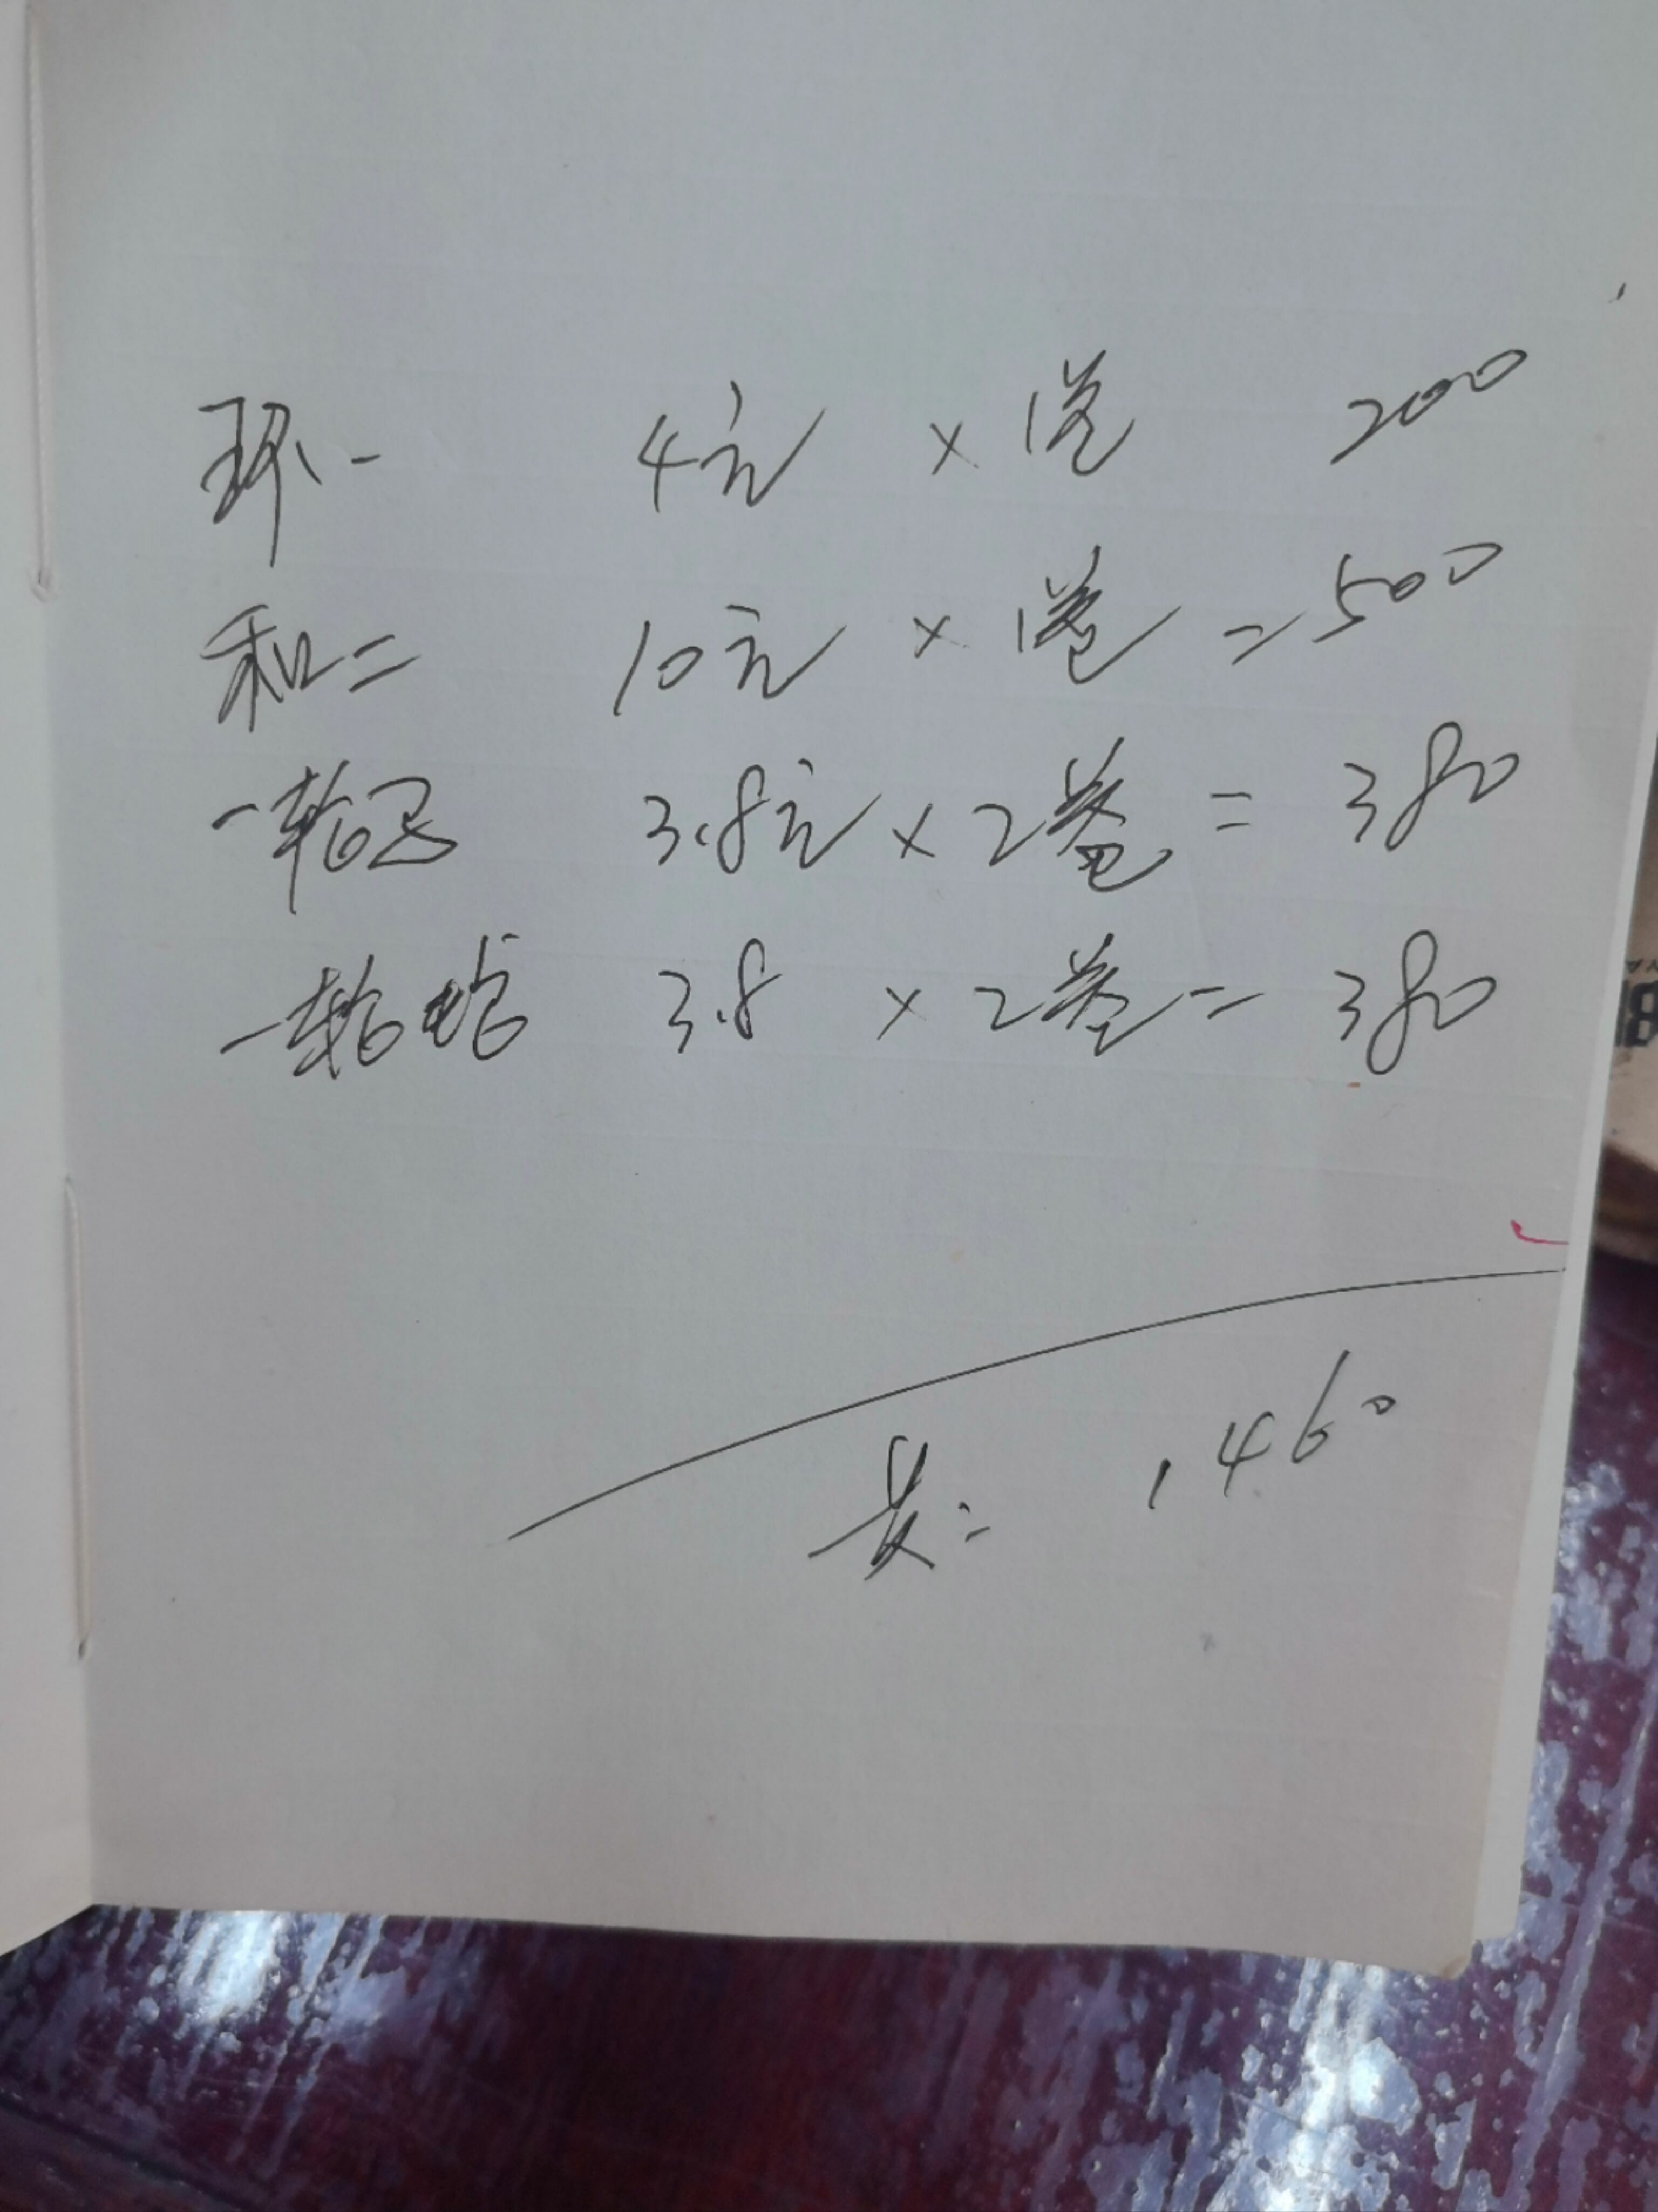 环一 4元 × 1卷 200
和二 10元 × 1卷 = 500
一轮马 3.8元 × 2卷 = 380
一轮蛇 3.8 × 2卷 = 380
共: 1460